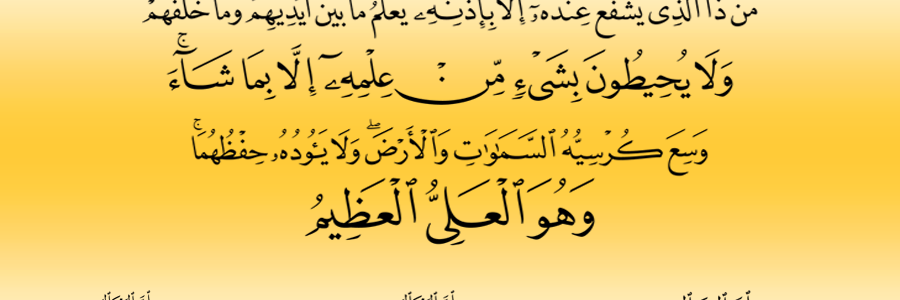 من ذا الذى يشفع عنده إلا بإذنه يعلم ما بين أيديهم وما خلفهم
وَلَا يُحِيطُونَ بِشَىْءٍ مِّنْ عِلْمِهِۦٓ إِلَّا بِمَا شَآءَ ۚ
وَسِعَ كُرْسِيُّهُ ٱلسَّمَـٰوَٰتِ وَٱلْأَرْضَ ۖ وَلَا يَـُٔودُهُۥ حِفْظُهُمَا ۚ
وَهُوَ ٱلْعَلِىُّ ٱلْعَظِيمُ